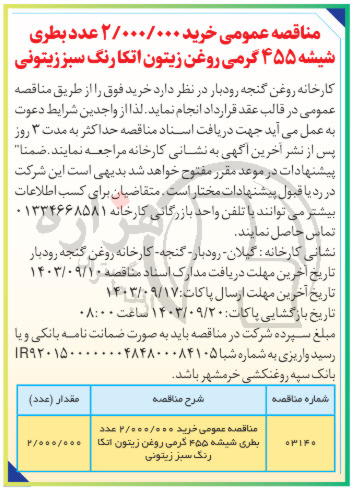 مناقصه عمومی خرید ۲/۰۰۰/۰۰۰ عدد بطری
شیشه ۴۵۵ گرمی روغن زیتون اتکا رنگ سبز زیتونی
کارخانه روغن گنجه رودبار در نظر دارد خرید فوق را از طریق مناقصه
عمومی در قالب عقد قرارداد انجام نماید. لذا از واجدین شرایط دعوت
به عمل می آید جهت دریافت اسناد مناقصه حداکثر به مدت ۳ روز
پس از نشر آخرین آگهی به نشانی کارخانه مراجعه نمایند. ضمنا"
پیشنهادات در موعد مقرر مفتوح خواهد شد بدیهی است این شرکت
در رد یا قبول پیشنهادات مختار است. متقاضیان برای کسب اطلاعات
بیشتر می توانند با تلفن واحد بازرگانی کارخانه ۰۱۳۳۴۶۶۸۵۸۱
تماس حاصل نمایند.
نشانی کارخانه: گیلان- رودبار- گنجه- کارخانه روغن گنجه رودبار
تاریخ آخرین مهلت دریافت مدارک اسناد مناقصه ۱۴۰۳/۰۹/۱۰
تاریخ آخرین مهلت ارسال پاکات: ۱۴۰۳/۰۹/۱۷
تاریخ بازگشایی پاکات: ۱۴۰۳/۰۹/۲۰ ساعت ۰۸:۰۰
مبلغ سپرده شرکت در مناقصه باید به صورت ضمانت نامه بانکی و یا
رسید واریزی به شماره شبا IR۹۲۰۱۵۰۰۰۰۰۰۰۴۸۴۸۰۰۰۸۴۱۰۵
بانک سپه روغنکشی خرمشهر باشد.
شماره مناقصه شرح مناقصه مقدار (عدد)
۰۳۱۴۰ مناقصه عمومی خرید ۲/۰۰۰/۰۰۰ عدد بطری شیشه ۴۵۵ گرمی روغن زیتون اتکا رنگ سبز زیتونی ۲/۰۰۰/۰۰۰
هزاره